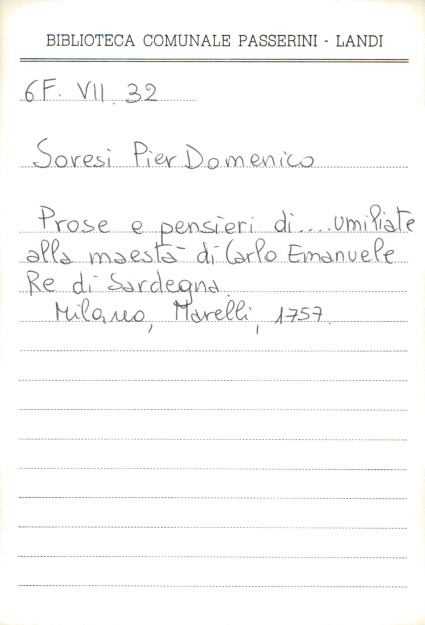 BIBLIOTECA COMUNALE PASSERINI - LANDI
6F. VII. 32
Soresi Pier Domenico
Prose e pensieri di....umiliate
alla maestà di Carlo Emanuele
Re di Sardegna.
Milano, Marelli, 1757.